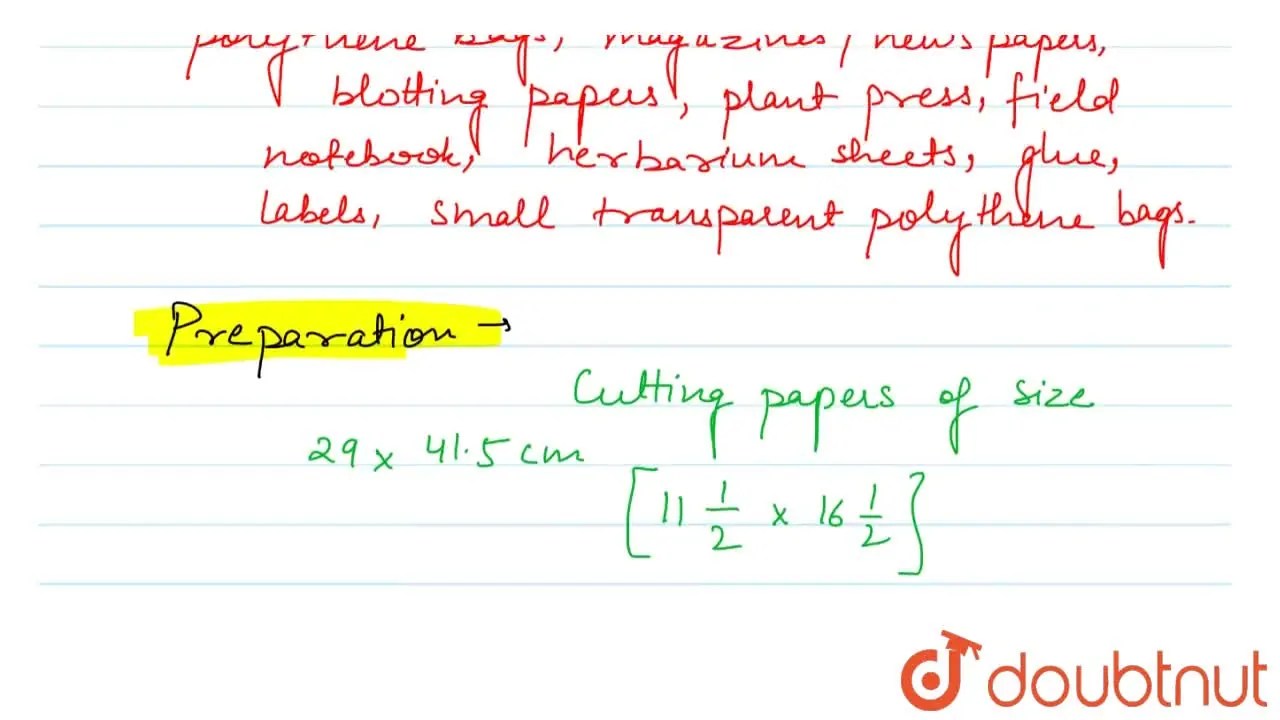 polythene bags, magazines/newspapers,
blotting papers, plant press, field
notebook, herbarium sheets, glue,
labels, small transparent polythene bags.
Preparation →
Cutting papers of size
29 x 41.5 cm
[11 1/2 x 16 1/2]
doubtnut